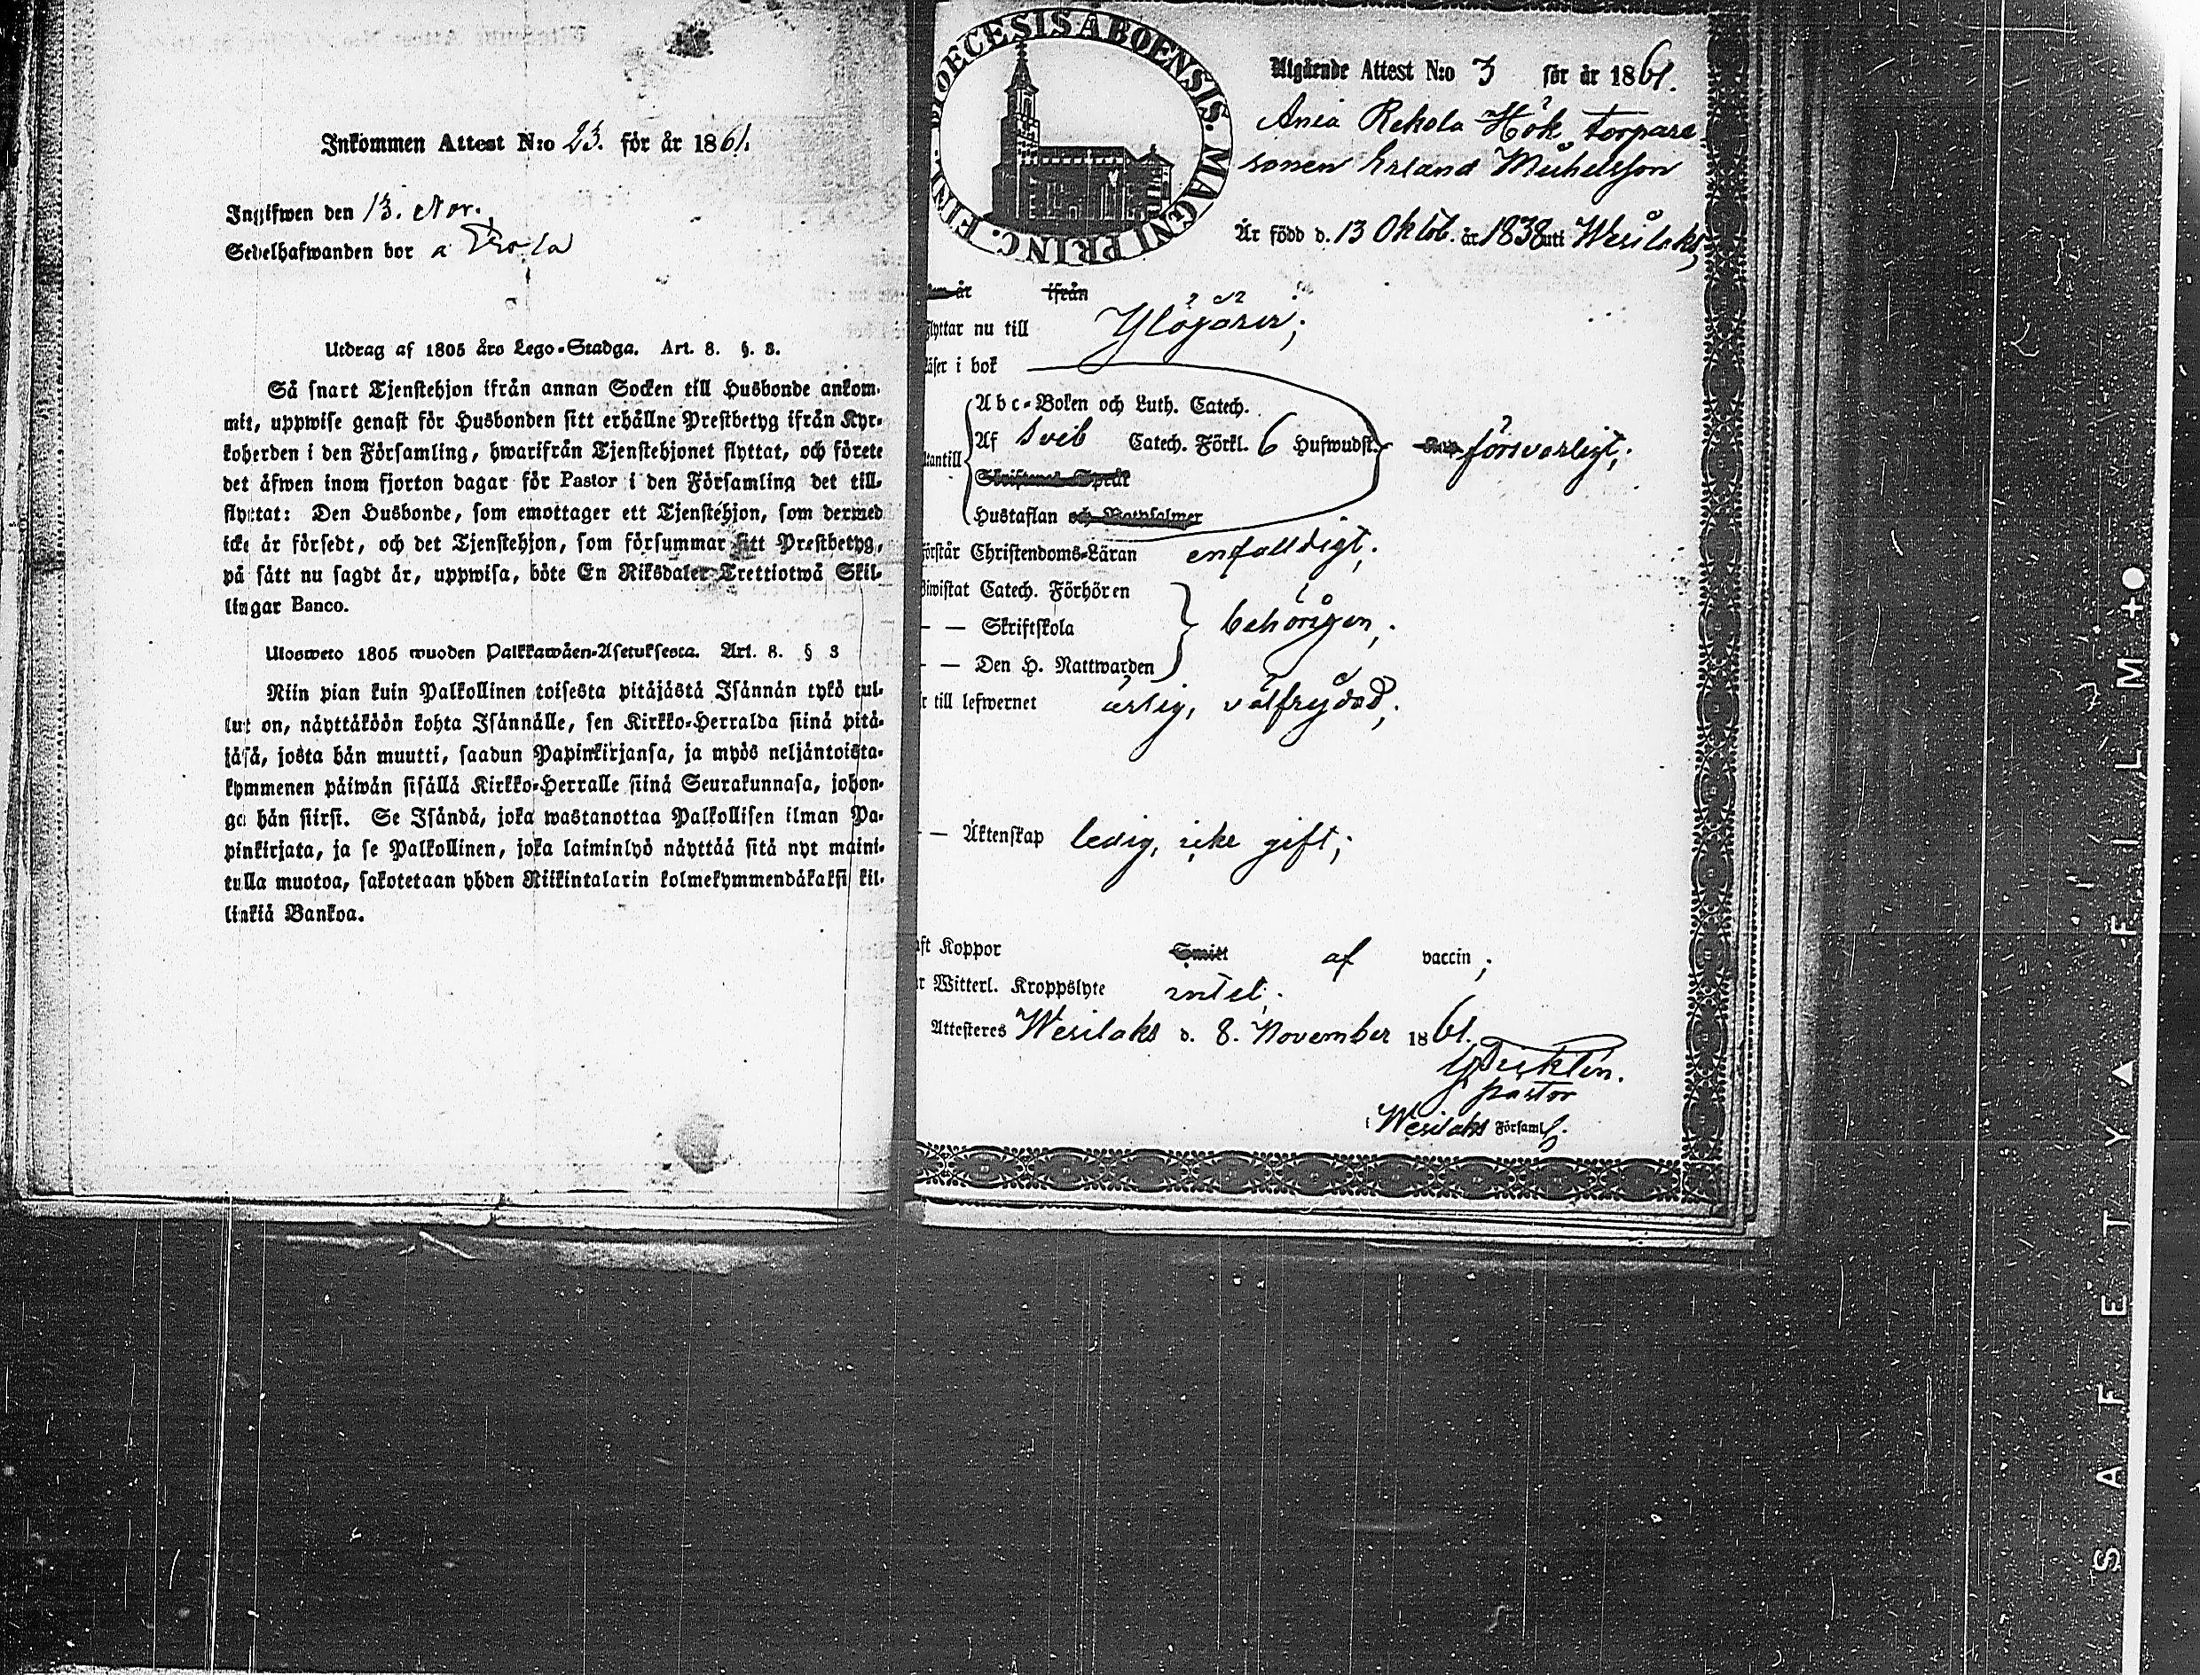 Inkommen Attest N:o 23. för år 1861.
Ingifwen den 13. Nov.
Sedelhafwanden bor å
Utdrag af 1805 års Lego-Stadga. Art. 8. §. 3.
Så snart Tjenstehjon ifrån annan Socken till Husbonde ankom-
mit, uppwise genast för Husbonden sitt erhållne Prestbetyg ifrån Kyr-
koherden i den Församling, hwarifrån Tjenstehjonet flyttat, och förete
det äfwen inom fjorton dagar för Pastor i den Församling det till-
flyttat: Den Husbonde, som emottager ett Tjenstehjon, som dermed
icke är försedt, och det Tjenstehjon, som försummar sitt Prestbetyg,
på sätt nu sagdt är, uppwisa, böte En Riksdaler Trettiotwå Skil-
lingar Banco.
Ulosweto 1805 wuoden Palkkawäen-Asetuksesta. Art. 8. § 3
Niin pian kuin Palkollinen toisesta pitäjästä Isännän tykö tul-
lut on, näyttäköön kohta Isännälle, sen Kirkko-Herralda siinä pitä-
jäsä, josta hän muutti, saadun Papinkirjansa, ja myös neljäntoista-
kymmenen päiwän sisällä Kirkko-Herralle siinä Seurakunnasa, johon-
ga hän siirsi. Se Isändä, joka wastanottaa Palkollisen ilman Pa-
pinkirjata, ja se Palkollinen, joka laiminlyö näyttää sitä nyt maini-
tulla muotoa, sakotetaan yhden Riikintalarin kolmekymmendäkaksi kil-
linkiä Bankoa.
DIOECESIS ABOENSIS. MAGNI PRINC. FINL.
Utgående Attest N:o 3 för år 1861.
Ania Rekola Hök torpare
sonen Erland Michelsson
Är född d. 13 Oktob. år 1838 uti Wesilaks,
år ifrån
flyttar nu till Ylöjärvi;
läser i bok
Abc-Boken och Luth. Catech.
utantill Af Sveb Catech. Förkl. 6 Hufwudst. försvarligt;
Skriftenes Språk
Hustaflan och Botpsalmer
förstår Christendoms-Läran enfalldigt;
biwistat Catech. Förhören
— — Skriftskola behörigen;
— — Den H. Nattwarden
är till lefwernet ärlig, välfrejdad;
— — Äktenskap ledig, icke gift;
haft Koppor Smitt af vaccin;
har Witterl. Kroppslyte intet;
Attesteres Wesilaks d. 8. November 1861.
pastor
i Wesilaks Församl
SAFETY ▲ FILM +●